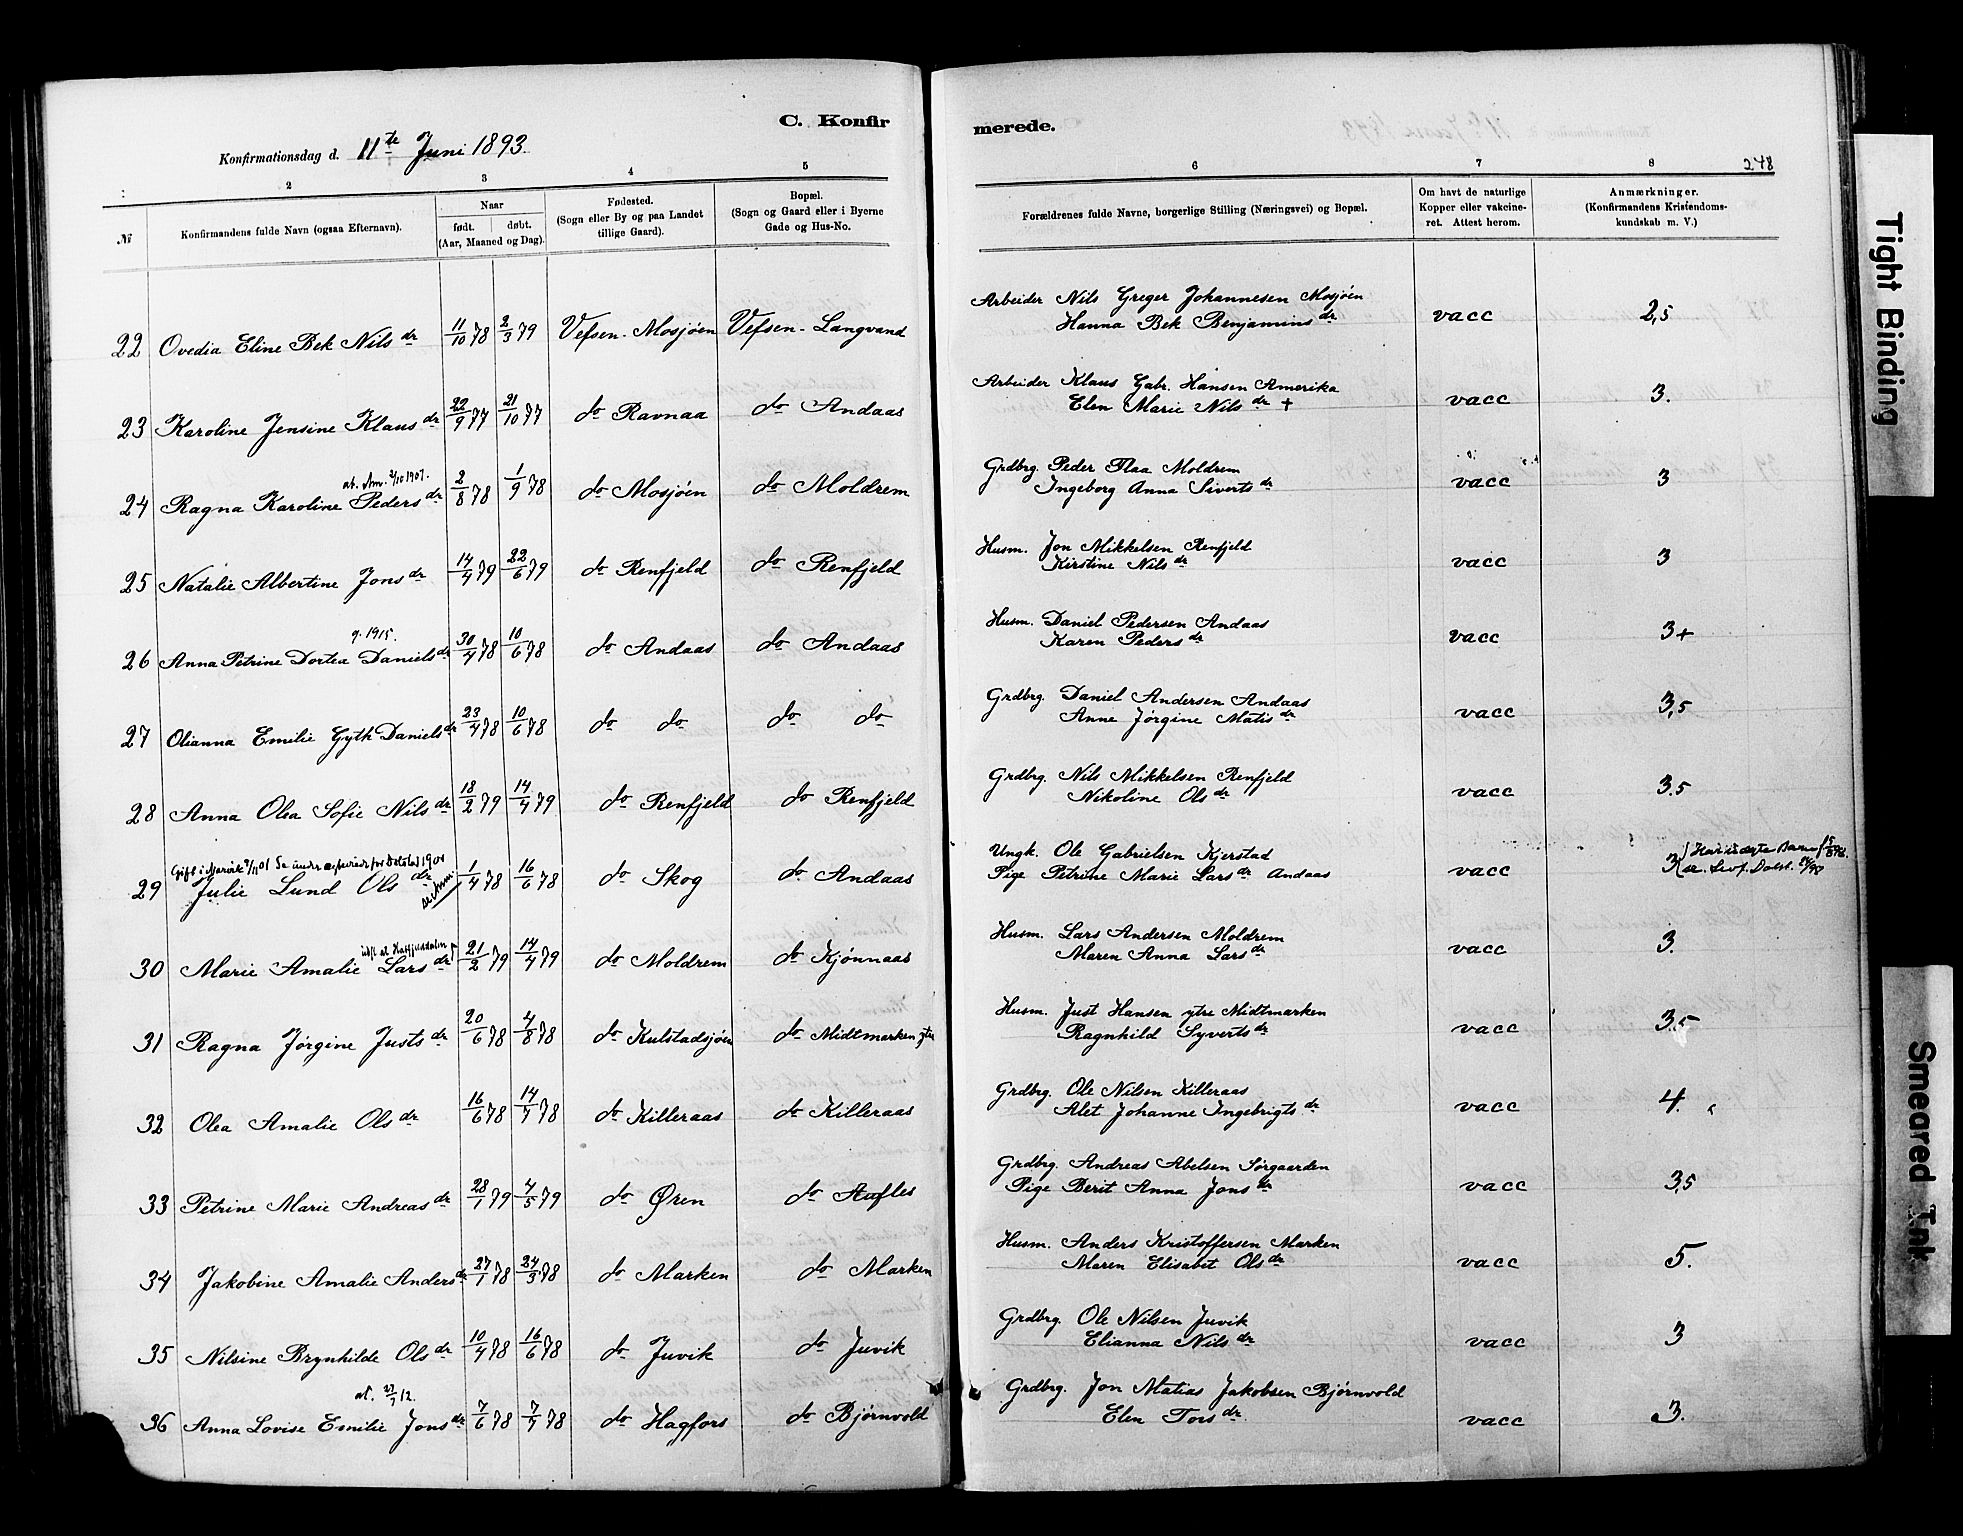 C. Konfirmerede.
Konfirmationsdag d. 11te Juni 1893.
248
2 3 4 5 6 7 8
№ Konfirmandens fulde Navn (ogsaa Efternavn). Naar født. døbt. (Aar, Maaned og Dag). Fødested. (Sogn eller By og paa Landet tillige Gaard). Bopæl. (Sogn og Gaard eller i Byerne Gade og Hus-No. Forældrenes fulde Navne, borgerlige Stilling (Næringsvei) og Bopæl. Om havt de naturlige Kopper eller vakcineret. Attest herom. Anmærkninger. (Konfirmandens Kristendomskundskab m. V.)
22 Ovedia Eline Bek Nilsdr 11/10 78 2/3 79 Vefsen - Mosjøen Vefsen - Langvand Arbeider Nils Greger Johannesen Mosjøen vacc 2,5
Hanna Bek Benjaminsdr
23 Karoline Jensine Klausdr 22/9 77 21/10 77 do Ravnaa do Andaas Arbeider Klaus Gabr. Hansen Amerika vacc 3.
Elen Marie Nilsdr +
at. Am. 2/10 1907.
24 Ragna Karoline Pedersdr 2/8 78 1/9 78 do Mosjøen do Moldrem Grdbrg. Peder Flaa Moldrem vacc 3
Ingeborg Anna Sivertsdr
25 Natalie Albertine Jonsdr 14/4 79 22/6 79 do Renfjeld do Renfjeld Husm. Jon Mikkelsen Renfjeld vacc 3
Kirstine Nilsdr
g. 1915.
26 Anna Petrine Dortea Danielsdr 30/4 78 10/6 78 do Andaas do Andaas Husm. Daniel Pedersen Andaas vacc 3+
Karen Pedersdr
27 Olianna Emilie Gyth Danielsdr 23/4 78 10/6 78 do do do do Grdbrg. Daniel Andersen Andaas vacc 3,5
Anne Jørgine Matisdr
28 Anna Olea Sofie Nilsdr 18/2 79 14/4 79 do Renfjeld do Renfjeld Grdbrg. Nils Mikkelsen Renfjeld vacc 3.5
Nikoline Olsdr
Gift i Narvik
29 Julie Lund Olsdr 1/4 78 16/6 78 do Skog do Andaas Ungk. Ole Gabrielsen Kjerstad vacc 3
Pige Petrine Marie Larsdr Andaas
udfl. at. Hatfjelddalen
30 Marie Amalie Larsdr 21/2 79 14/4 79 do Moldrem do Kjønnaas Husm. Lars Andersen Moldrem vacc 3.
Maren Anna Larsdr
31 Ragna Jørgine Justsdr 20/6 78 4/8 78 do Kulstadsjøen do Midtmarken ytre Husm. Just Hansen ytre Midtmarken vacc 3.5
Ragnhild Syvertsdr
32 Olea Amalie Olsdr 16/6 78 14/7 78 do Killeraas do Killeraas Grdbrg. Ole Nilsen Killeraas vacc 4.
Alet Johanne Ingebrigtsdr
33 Petrine Marie Andreasdr 28/1 79 4/5 79 do Øren do Aufles Grdbrg. Andreas Abelsen Sørgaarden vacc 3,5
Pige Berit Anna Jonsdr
34 Jakobine Amalie Andersdr 27/1 78 24/3 78 do Marken do Marken Husm. Anders Kristoffersen Marken vacc 5.
Maren Elisabet Olsdr
35 Nilsine Brynhilde Olsdr 10/4 78 16/6 78 do Juvik do Juvik Grdbrg. Ole Nilsen Juvik vacc 3
Elianna Nilsdr
at. 27/7 12.
36 Anna Lovise Emilie Jonsdr 7/6 78 7/7 78 do Hagfors do Bjørnvold Grdbrg. Jon Matias Jakobsen Bjørnvold vacc 3.
Elen Torsdr
Tight Binding
Smeared Ink